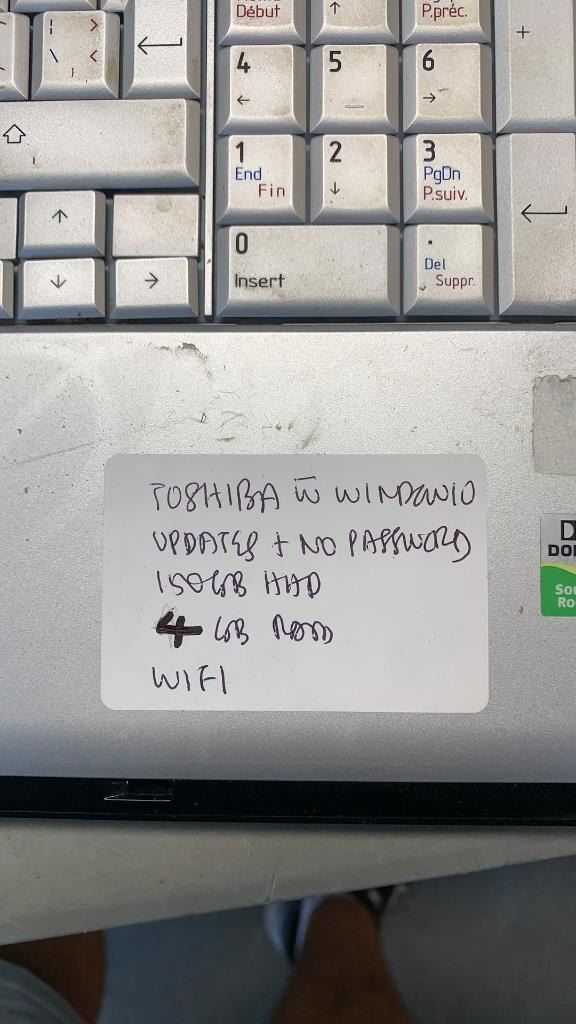 Début
↑
P.préc.
+
4
←
5
6
→
1
End
Fin
2
↓
3
PgDn
P.suiv.
0
Insert
.
Del
Suppr.
TOSHIBA W WINDOW10
UPDATES + NO PASSWORD
150GB HHD
4 GB
WIFI